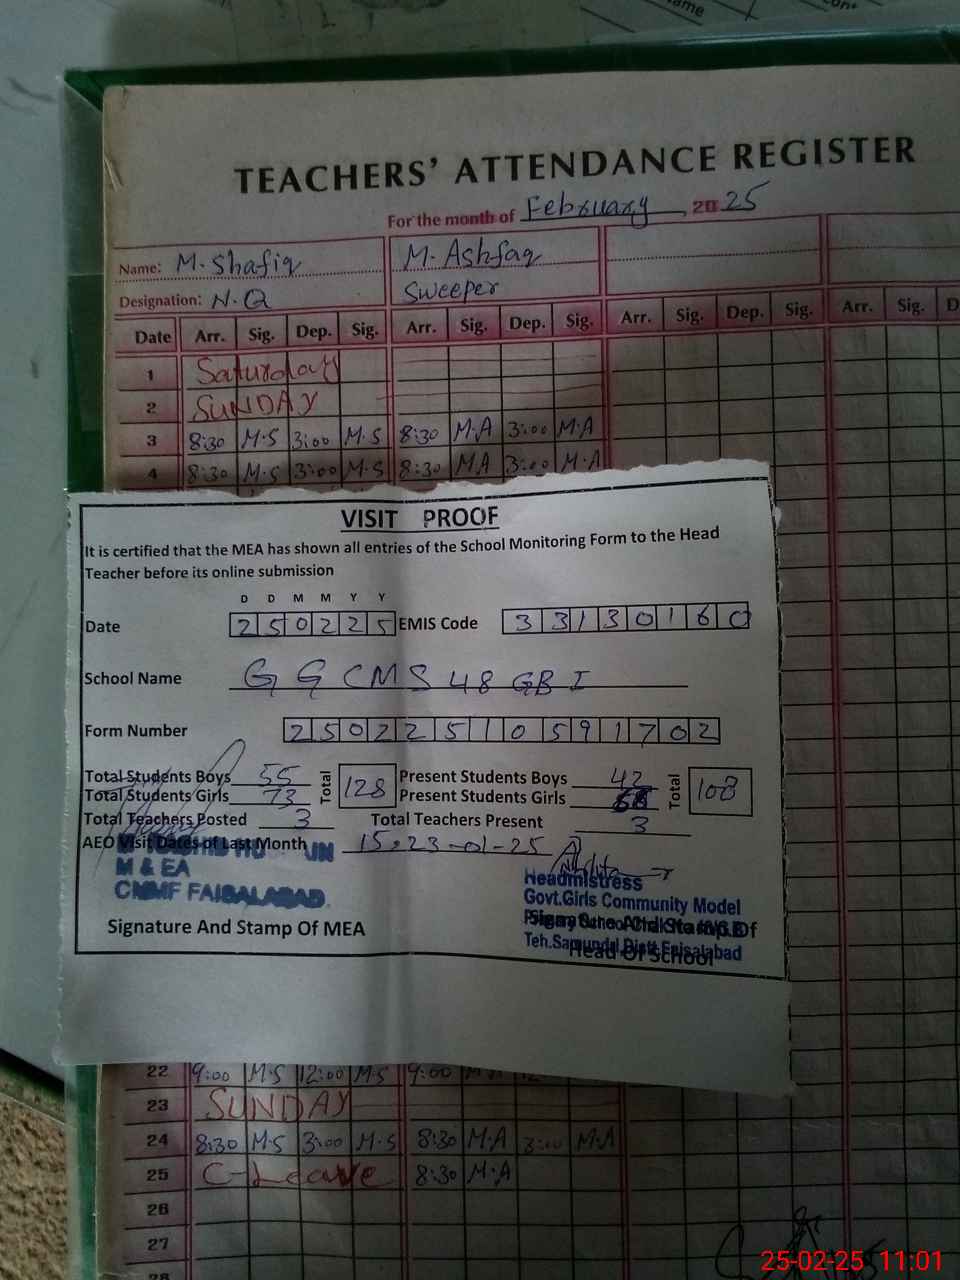 TEACHERS' ATTENDANCE REGISTER
For the month of February, 2025
Name: M. Shafiq M. Ashfaq
Designation: N.Q Sweeper
Date Arr. Sig. Dep. Sig. Arr. Sig. Dep. Sig. Arr. Sig. Dep. Sig. Arr. Sig. D
1 Saturday
2 SUNDAY
3 8:30 M.S 3:00 M.S 8:30 M.A 3:00 M.A
4 8:30 M.S 3:00 M.S 8:30 M.A 3:00 M.A
VISIT PROOF
It is certified that the MEA has shown all entries of the School Monitoring Form to the Head
Teacher before its online submission
D D M M Y Y
Date 250225 EMIS Code 33130160
School Name GGCMS 48 GB I
Form Number 25022510591702
Total Students Boys 55 Total 128 Present Students Boys 42 Total 108
Total Students Girls 73 Present Students Girls
Total Teachers Posted 3 Total Teachers Present 3
AEO Visit Dates of Last Month 15,23-01-25
M & EA
CMMF FAISALABAD.
Headmistress
Govt.Girls Community Model
Signature And Stamp Of MEA
Signature And Stamp Of
Teh.Samundri Distt.Faisalabad
Head Of School
22 9:00 M.S 12:00 M.S 9:00
23 SUNDAY
24 8:30 M.S 3:00 M.S 8:30 M.A 3:00 M.A
25 C-Leave 8:30 M.A
26
27
28
25-02-25 11:01